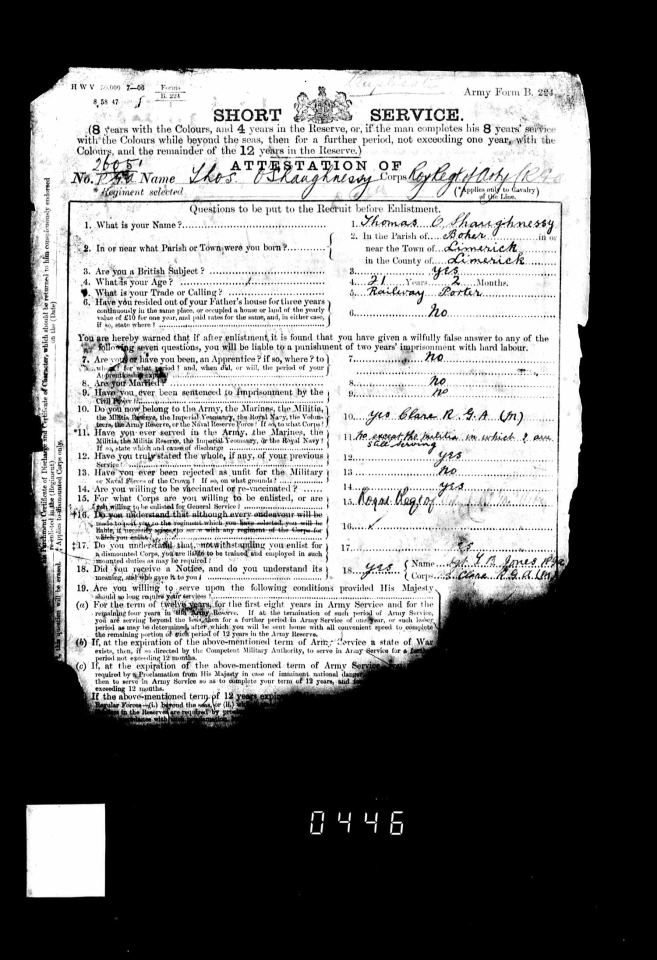 H W V 50,000 7—06 Forms B. 224
8 58 47
Army Form B. 224.
SHORT SERVICE.
(8 years with the Colours, and 4 years in the Reserve, or, if the man completes his 8 years' service
with the Colours while beyond the seas, then for a further period, not exceeding one year, with the
Colours, and the remainder of the 12 years in the Reserve.)
ATTESTATION OF
2605
No. Name Thos. O'Shaughnessy Corps Roy Regt of Arty
*Regiment selected (*Applies only to Cavalry of the Line.
Questions to be put to the Recruit before Enlistment.
1. What is your Name? 1. Thomas O'Shaughnessy
2. In or near what Parish or Town were you born? 2. In the Parish of Boher in or
near the Town of Limerick
in the County of Limerick
3. Are you a British Subject? 3. yes
4. What is your Age? 4. 21 Years 2 Months.
5. What is your Trade or Calling? 5. Railway Porter
6. Have you resided out of your Father's house for three years
continuously in the same place, or occupied a house or land of the yearly
value of £10 for one year, and paid rates for the same, and, in either case,
if so, state where? 6. No
You are hereby warned that if after enlistment it is found that you have given a wilfully false answer to any of the
following seven questions, you will be liable to a punishment of two years' imprisonment with hard labour.
7. Are you or have you been, an Apprentice? if so, where? to
whom? for what period? and, when did, or will, the period of your
Apprenticeship expire? 7. No
8. Are you Married? 8. No
9. Have you ever been sentenced to Imprisonment by the
Civil Power? 9. No
10. Do you now belong to the Army, the Marines, the Militia,
the Militia Reserve, the Imperial Yeomanry, the Royal Navy, the Volun-
teers, the Army Reserve, or the Naval Reserve Force? If so, to what Corps? 10. yes Clare R.G.A (M)
*11. Have you ever served in the Army, the Marines, the
Militia, the Militia Reserve, the Imperial Yeomanry, or the Royal Navy?
If so, state which and cause of discharge 11. No except the militia in which I am
still serving
12. Have you truly stated the whole, if any, of your previous
Service? 12. yes
13. Have you ever been rejected as unfit for the Military
or Naval Forces of the Crown? If so, on what grounds? 13. No
14. Are you willing to be vaccinated or re-vaccinated? 14. yes
15. For what Corps are you willing to be enlisted, or are
you willing to be enlisted for General Service? 15. Royal Reg of
†16. Do you understand that although every endeavour will be
made to post you to the regiment which you have selected, you will be
liable, if necessary, to serve with any regiment of the Corps for
which you enlist 16.
‡17. Do you understand that, notwithstanding you enlist for
a dismounted Corps, you are liable to be trained and employed in such
mounted duties as may be required? 17.
18. Did you receive a Notice, and do you understand its
meaning, and who gave it to you? 18. yes Name Sgt T. B. Jones
Corps Clare R.G.A (M)
19. Are you willing to serve upon the following conditions provided His Majesty
should so long require your services?
(a) For the term of twelve years, for the first eight years in Army Service and for the
remaining four years in the Army Reserve. If at the termination of such period of Army Service,
you are serving beyond the seas, then for a further period in Army Service of one year, or such lesser
period as may be determined, after which you will be sent home with all convenient speed to complete
the remaining portion of such period of 12 years in the Army Reserve.
(b) If, at the expiration of the above-mentioned term of Army Service a state of War
exists, then, if so directed by the Competent Military Authority, to serve in Army Service for a
period not exceeding 12 months.
(c) If, at the expiration of the above-mentioned term of Army Service
required by a Proclamation from His Majesty in case of imminent national danger
then to serve in Army Service so as to complete your term of 12 years, and
exceeding 12 months.
If the above-mentioned term of 12 years
Regular Forces—(i.) beyond the seas, or (ii.)
0446